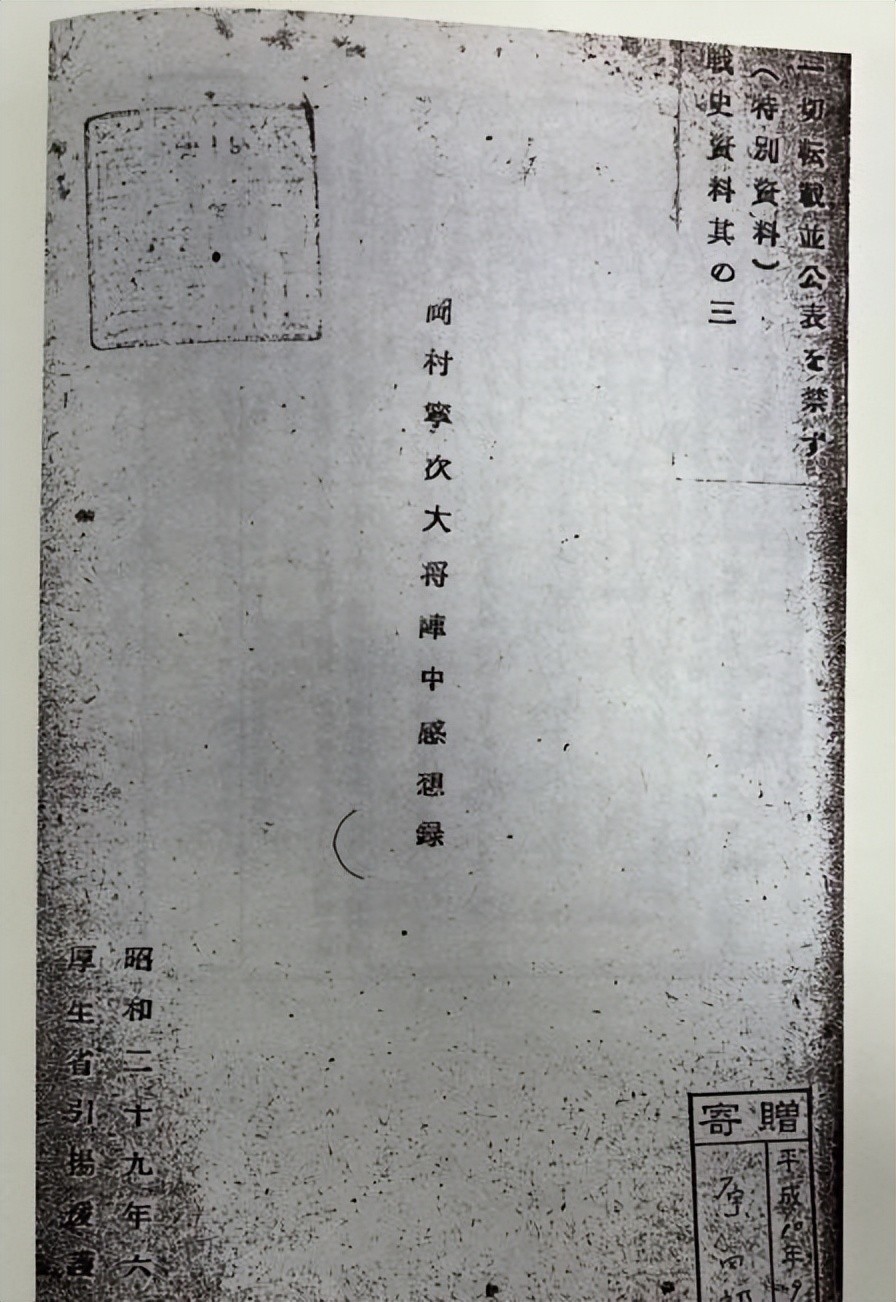 一切転載並公表を禁ず
(特別資料)
戦史資料其の三
岡村寧次大将陣中感想録
昭和二十九年六
厚生省引揚援護
寄贈
平成10年9